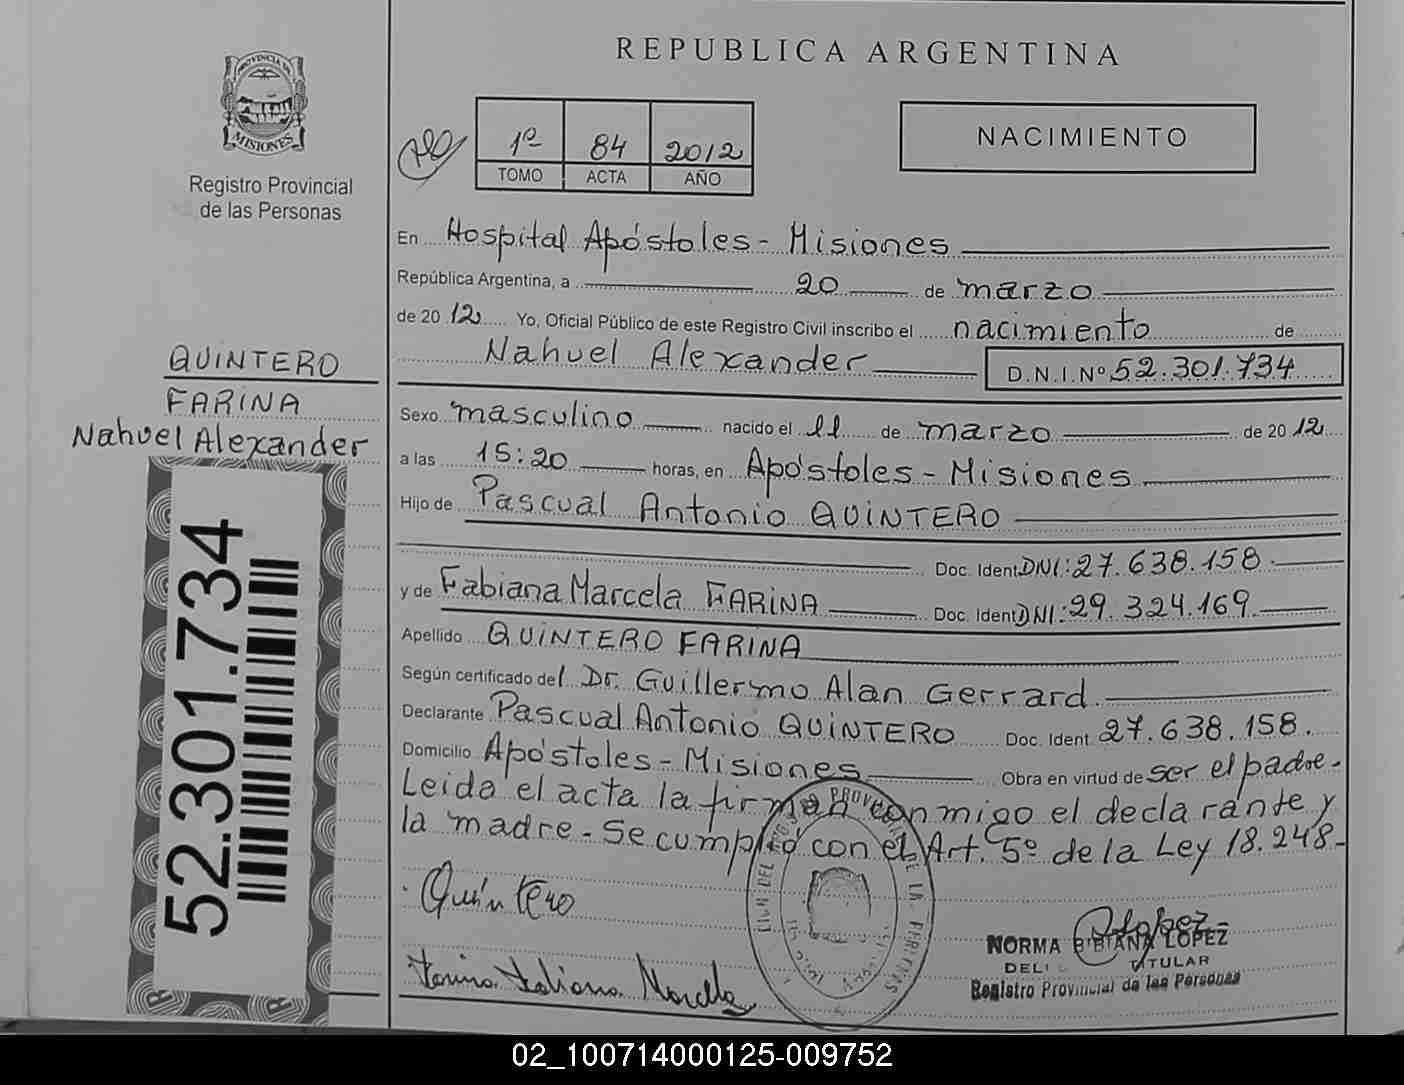 REPUBLICA ARGENTINA
PROVINCIA DE
MISIONES
Registro Provincial
de las Personas
1º 84 2012
TOMO ACTA AÑO
NACIMIENTO
En Hospital Apóstoles - Misiones
República Argentina, a 20 de marzo
de 2012 Yo, Oficial Público de este Registro Civil inscribo el nacimiento de
Nahuel Alexander D.N.I.Nº 52.301.734
Sexo masculino nacido el 11 de marzo de 2012
a las 15:20 horas, en Apóstoles - Misiones
Hijo de Pascual Antonio QUINTERO
Doc. Ident DNI: 27.638.158
y de Fabiana Marcela FARINA Doc. Ident DNI: 29.324.169
Apellido QUINTERO FARINA
Según certificado del Dr. Guillermo Alan Gerrard
Declarante Pascual Antonio QUINTERO Doc. Ident 27.638.158.
Domicilio Apóstoles - Misiones Obra en virtud de ser el padre.
Leida el acta la firman conmigo el declarante y
la madre - Se cumplió con el Art. 5º de la Ley 18.248-
QUINTERO
FARINA
Nahuel Alexander
52.301.734
Quintero
Farina Fabiana Marcela
NORMA BIBIANA LOPEZ
TITULAR
Registro Provincial de las Personas
02_100714000125-009752